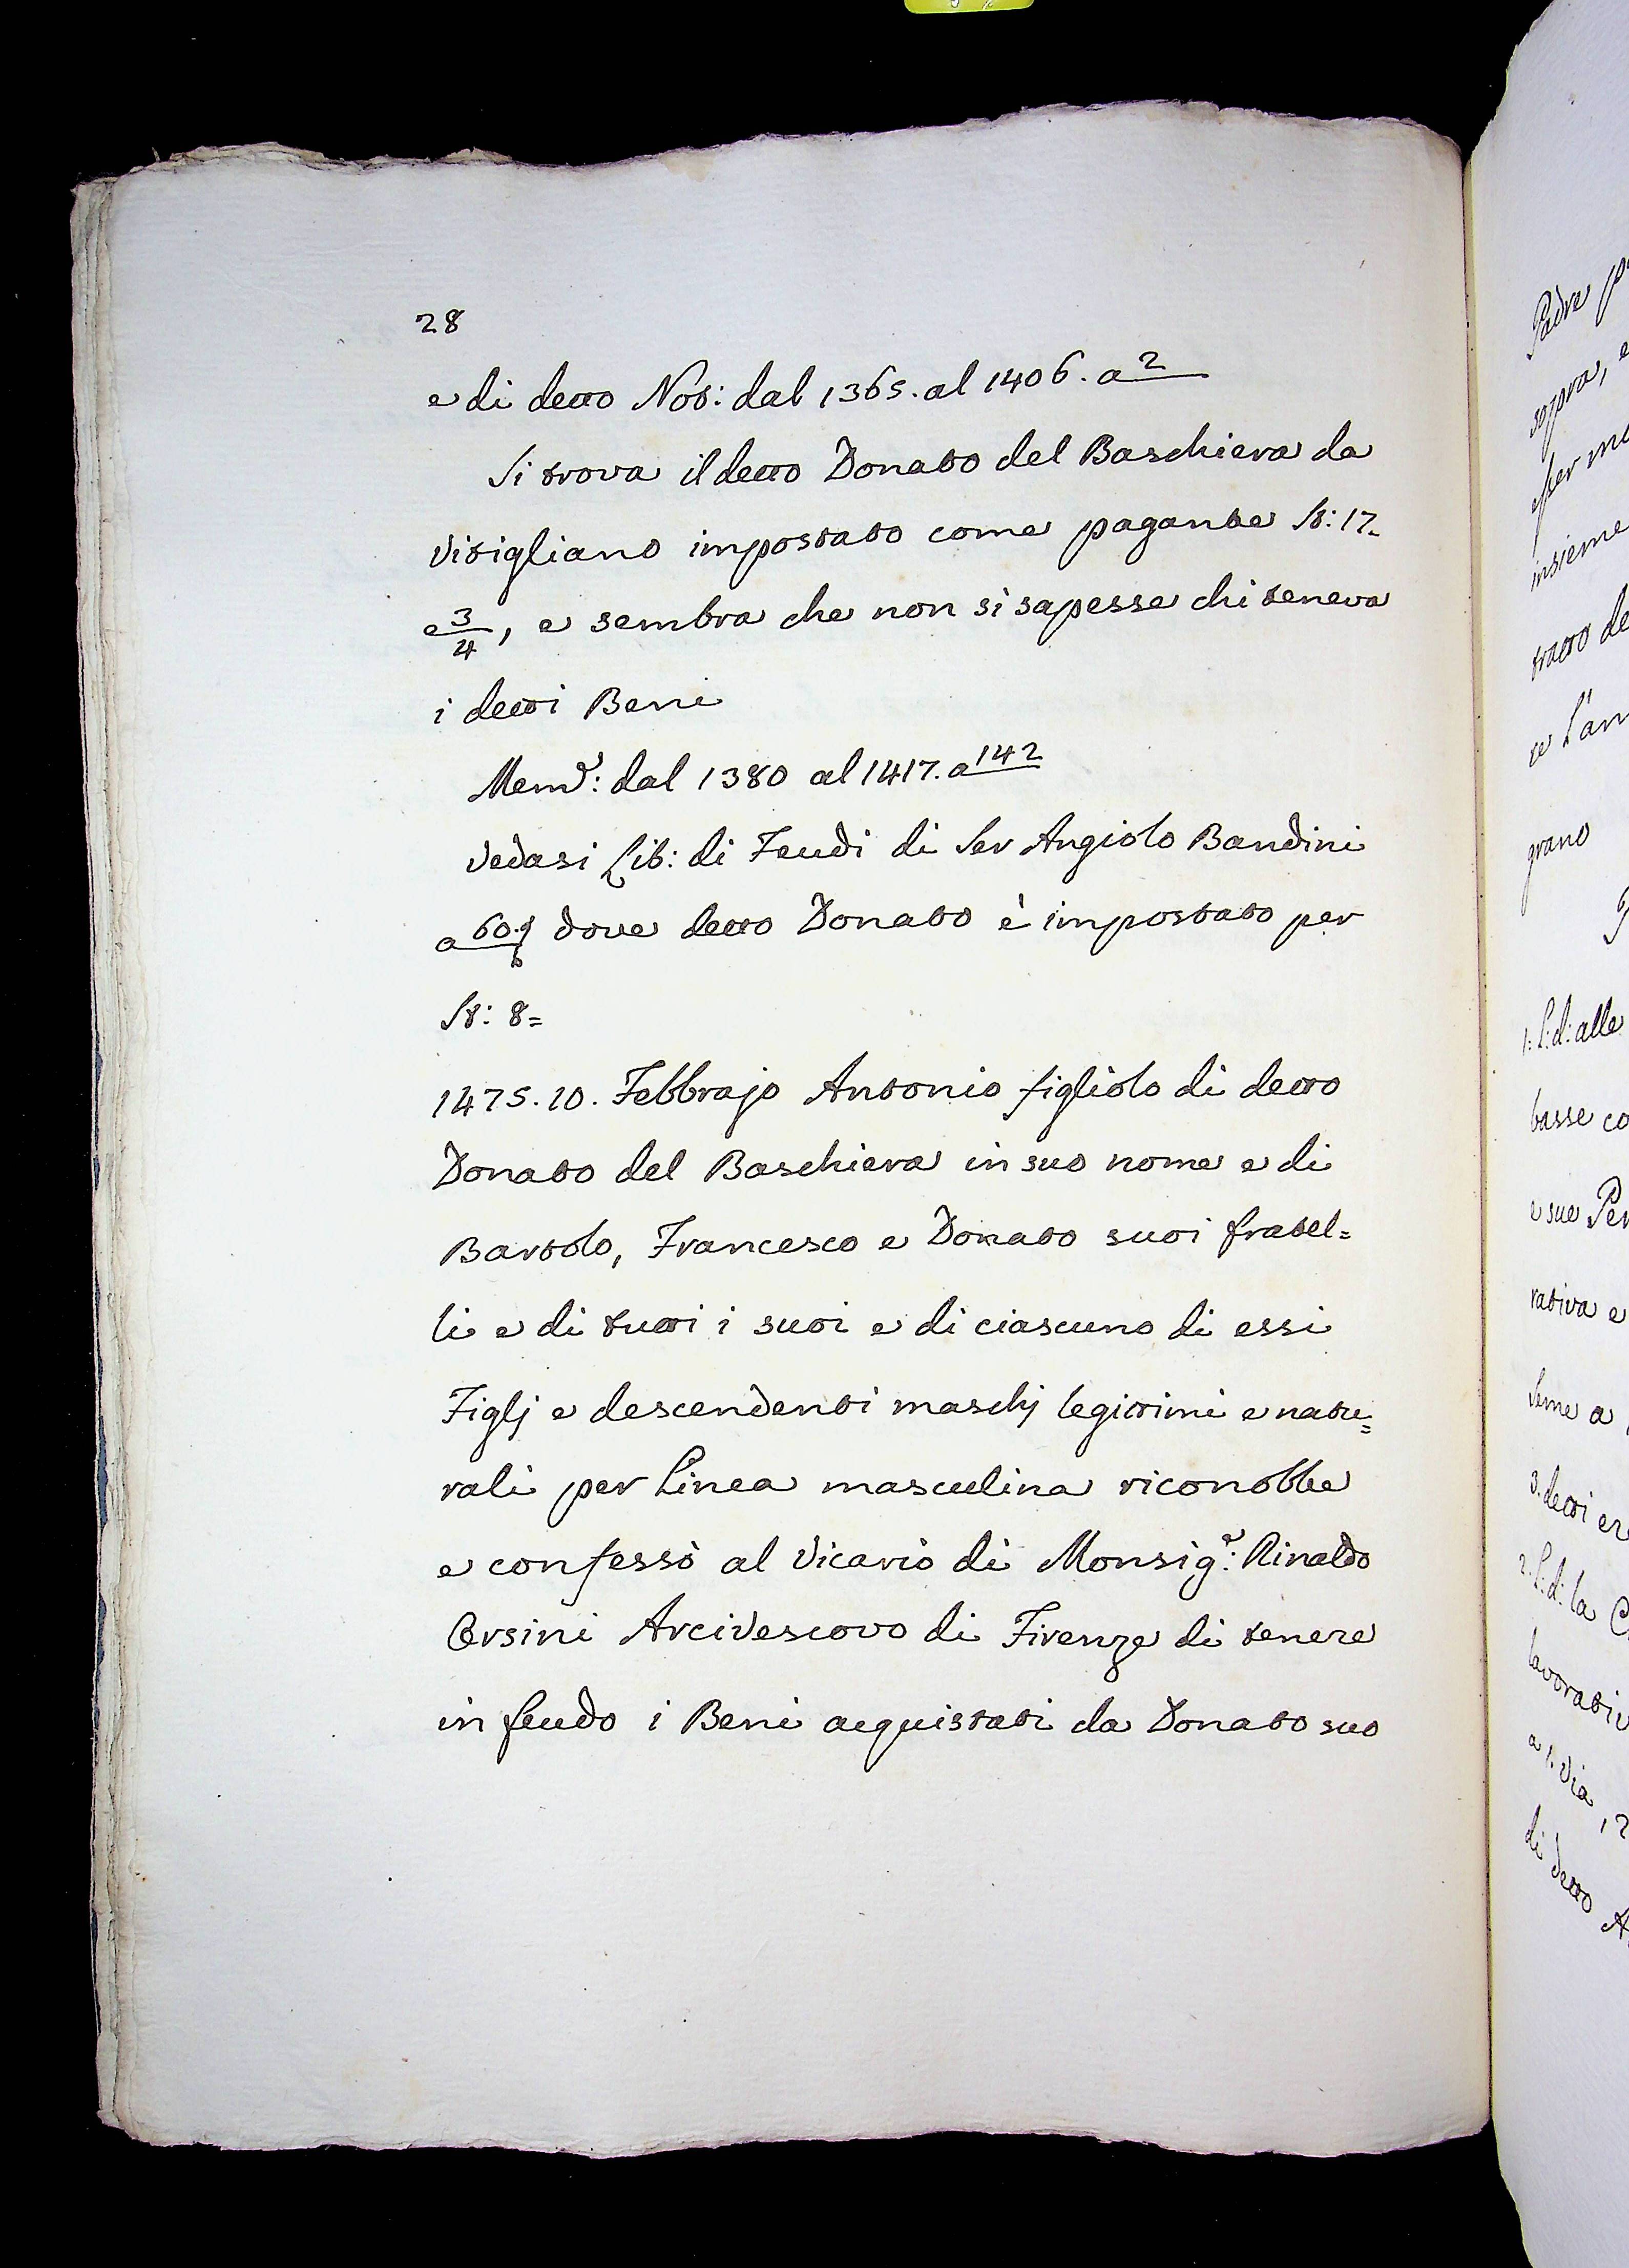 28
e di detto Not: dal 1365. al 1406. a 2
Si trova il detto Donato del Baschiera da
Vitigliano impostato come pagante St: 17.
e 3/4, e sembra che non si sapesse chi teneva
i detti Beni
Mem.e: dal 1380 al 1417. a 142
Vedasi Lib: di Feudi di Ser Angiolo Bandini
a 60. dove detto Donato è impostato per
St: 8=
1475. 10. Febbrajo Antonio figliolo di detto
Donato del Baschiera in suo nome e di
Bartolo, Francesco e Donato suoi fratel=
li e di tutti i suoi e di ciascuno di essi
Figlj e descendenti maschj legittimi e natu=
rali per Linea masculina riconobbe
e confessò al Vicario di Monsig.e: Rinaldo
Orsini Arcivescovo di Firenze di tenere
in feudo i Beni acquistati da Donato suo
Padre
sopra,
insieme
tratto de
grano
1: L:d: alle
basse co
e sue
rativa e
Seme a
3. detti
2. L:d: la
a 1. Via, 2
di detto